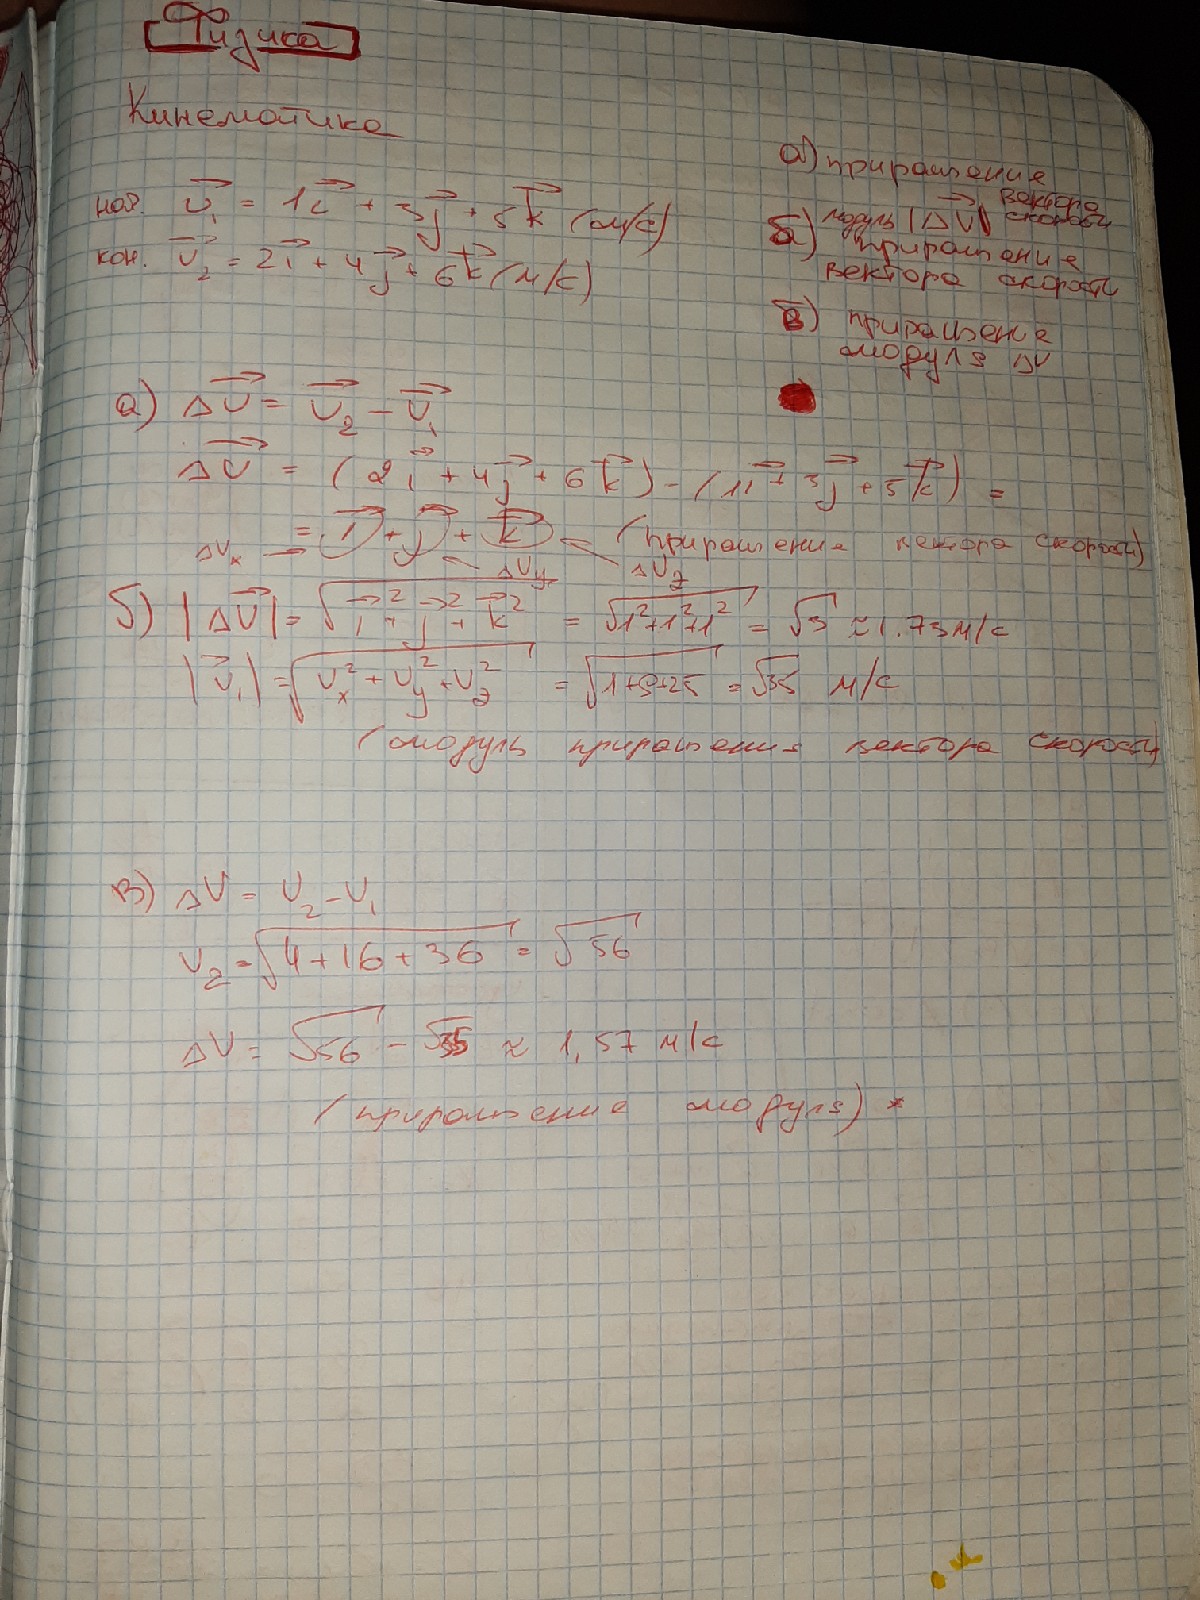 Физика
Кинематика
а) приращение
вектора
скорости
нач. v₁ = 1i + 3j + 5k (м/с)
б) модуль |ΔV|
приращение
вектора скорости
кон. v₂ = 2i + 4j + 6k (м/с)
в) приращение
модуля ΔV
а) ΔV = V₂ - V₁
ΔV = (2i + 4j + 6k) - (1i + 3j + 5k) =
= i + j + k (приращение вектора скорости)
ΔVx ΔVy ΔVz
б) |ΔV| = √i² + j² + k² = √1²+1²+1² = √3 ≈ 1.73 м/с
|V₁| = √Vx² + Vy² + Vz² = √1+9+25 = √35 м/с
(модуль приращения вектора скорости)
в) ΔV = V₂ - V₁
V₂ = √4+16+36 = √56
ΔV = √56 - √35 ≈ 1,57 м/с
(приращение модуля) *